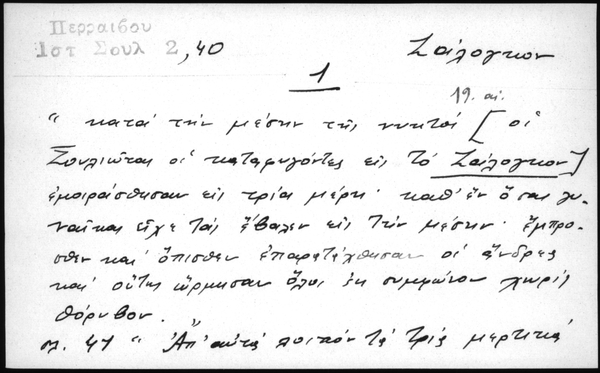 Περραιβου
Ιστ Σουλ 2, 40
Ζάλογκον
1
19. αι.
“ κατά τήν μέσην τῆς νυκτός [ οἱ
Σουλιῶται οἱ καταφυγόντες εἰς τό Ζάλογκον ]
ἐμοιράσθησαν εἰς τρία μέρη· καθ' ἕν ὅσας γυ-
ναῖκας εἶχε τάς ἔβαλεν εἰς τήν μέσην· ἔμπρο-
σθεν καί ὄπισθεν ἐπαρετάχθησαν οἱ ἄνδρες
καί οὕτως ὥρμησαν ὅλοι ἐκ συμφώνου χωρίς
θόρυβον. ”
σλ. 41 “ Ἀπ' αὐτά λοιπόν τά τρία μερτικά